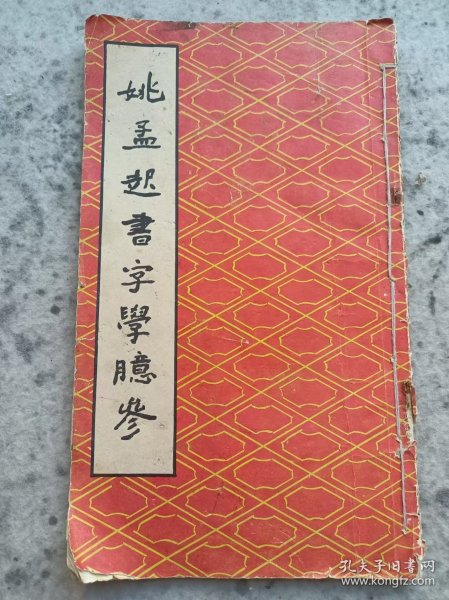 姚孟起書字學臆參
孔夫子旧书网
www.kongfz.com